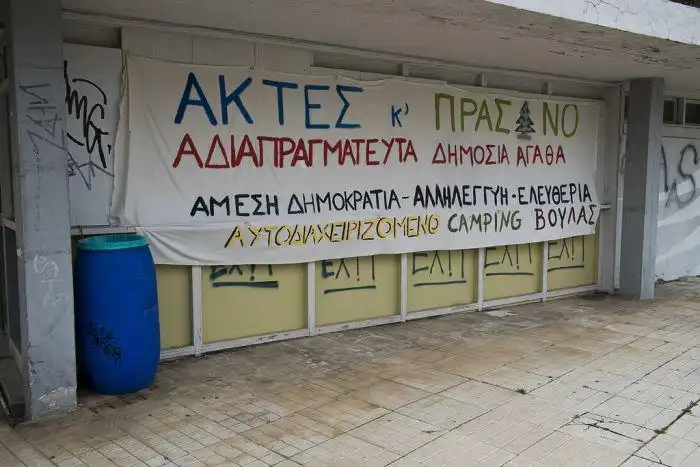 ΑΚΤΕΣ κ' ΠΡΑΣΙΝΟ
ΑΔΙΑΠΡΑΓΜΑΤΕΥΤΑ ΔΗΜΟΣΙΑ ΑΓΑΘΑ
ΑΜΕΣΗ ΔΗΜΟΚΡΑΤΙΑ - ΑΛΛΗΛΕΓΓΥΗ - ΕΛΕΥΘΕΡΙΑ
ΑΥΤΟΔΙΑΧΕΙΡΙΖΟΜΕΝΟ CAMPING ΒΟΥΛΑΣ